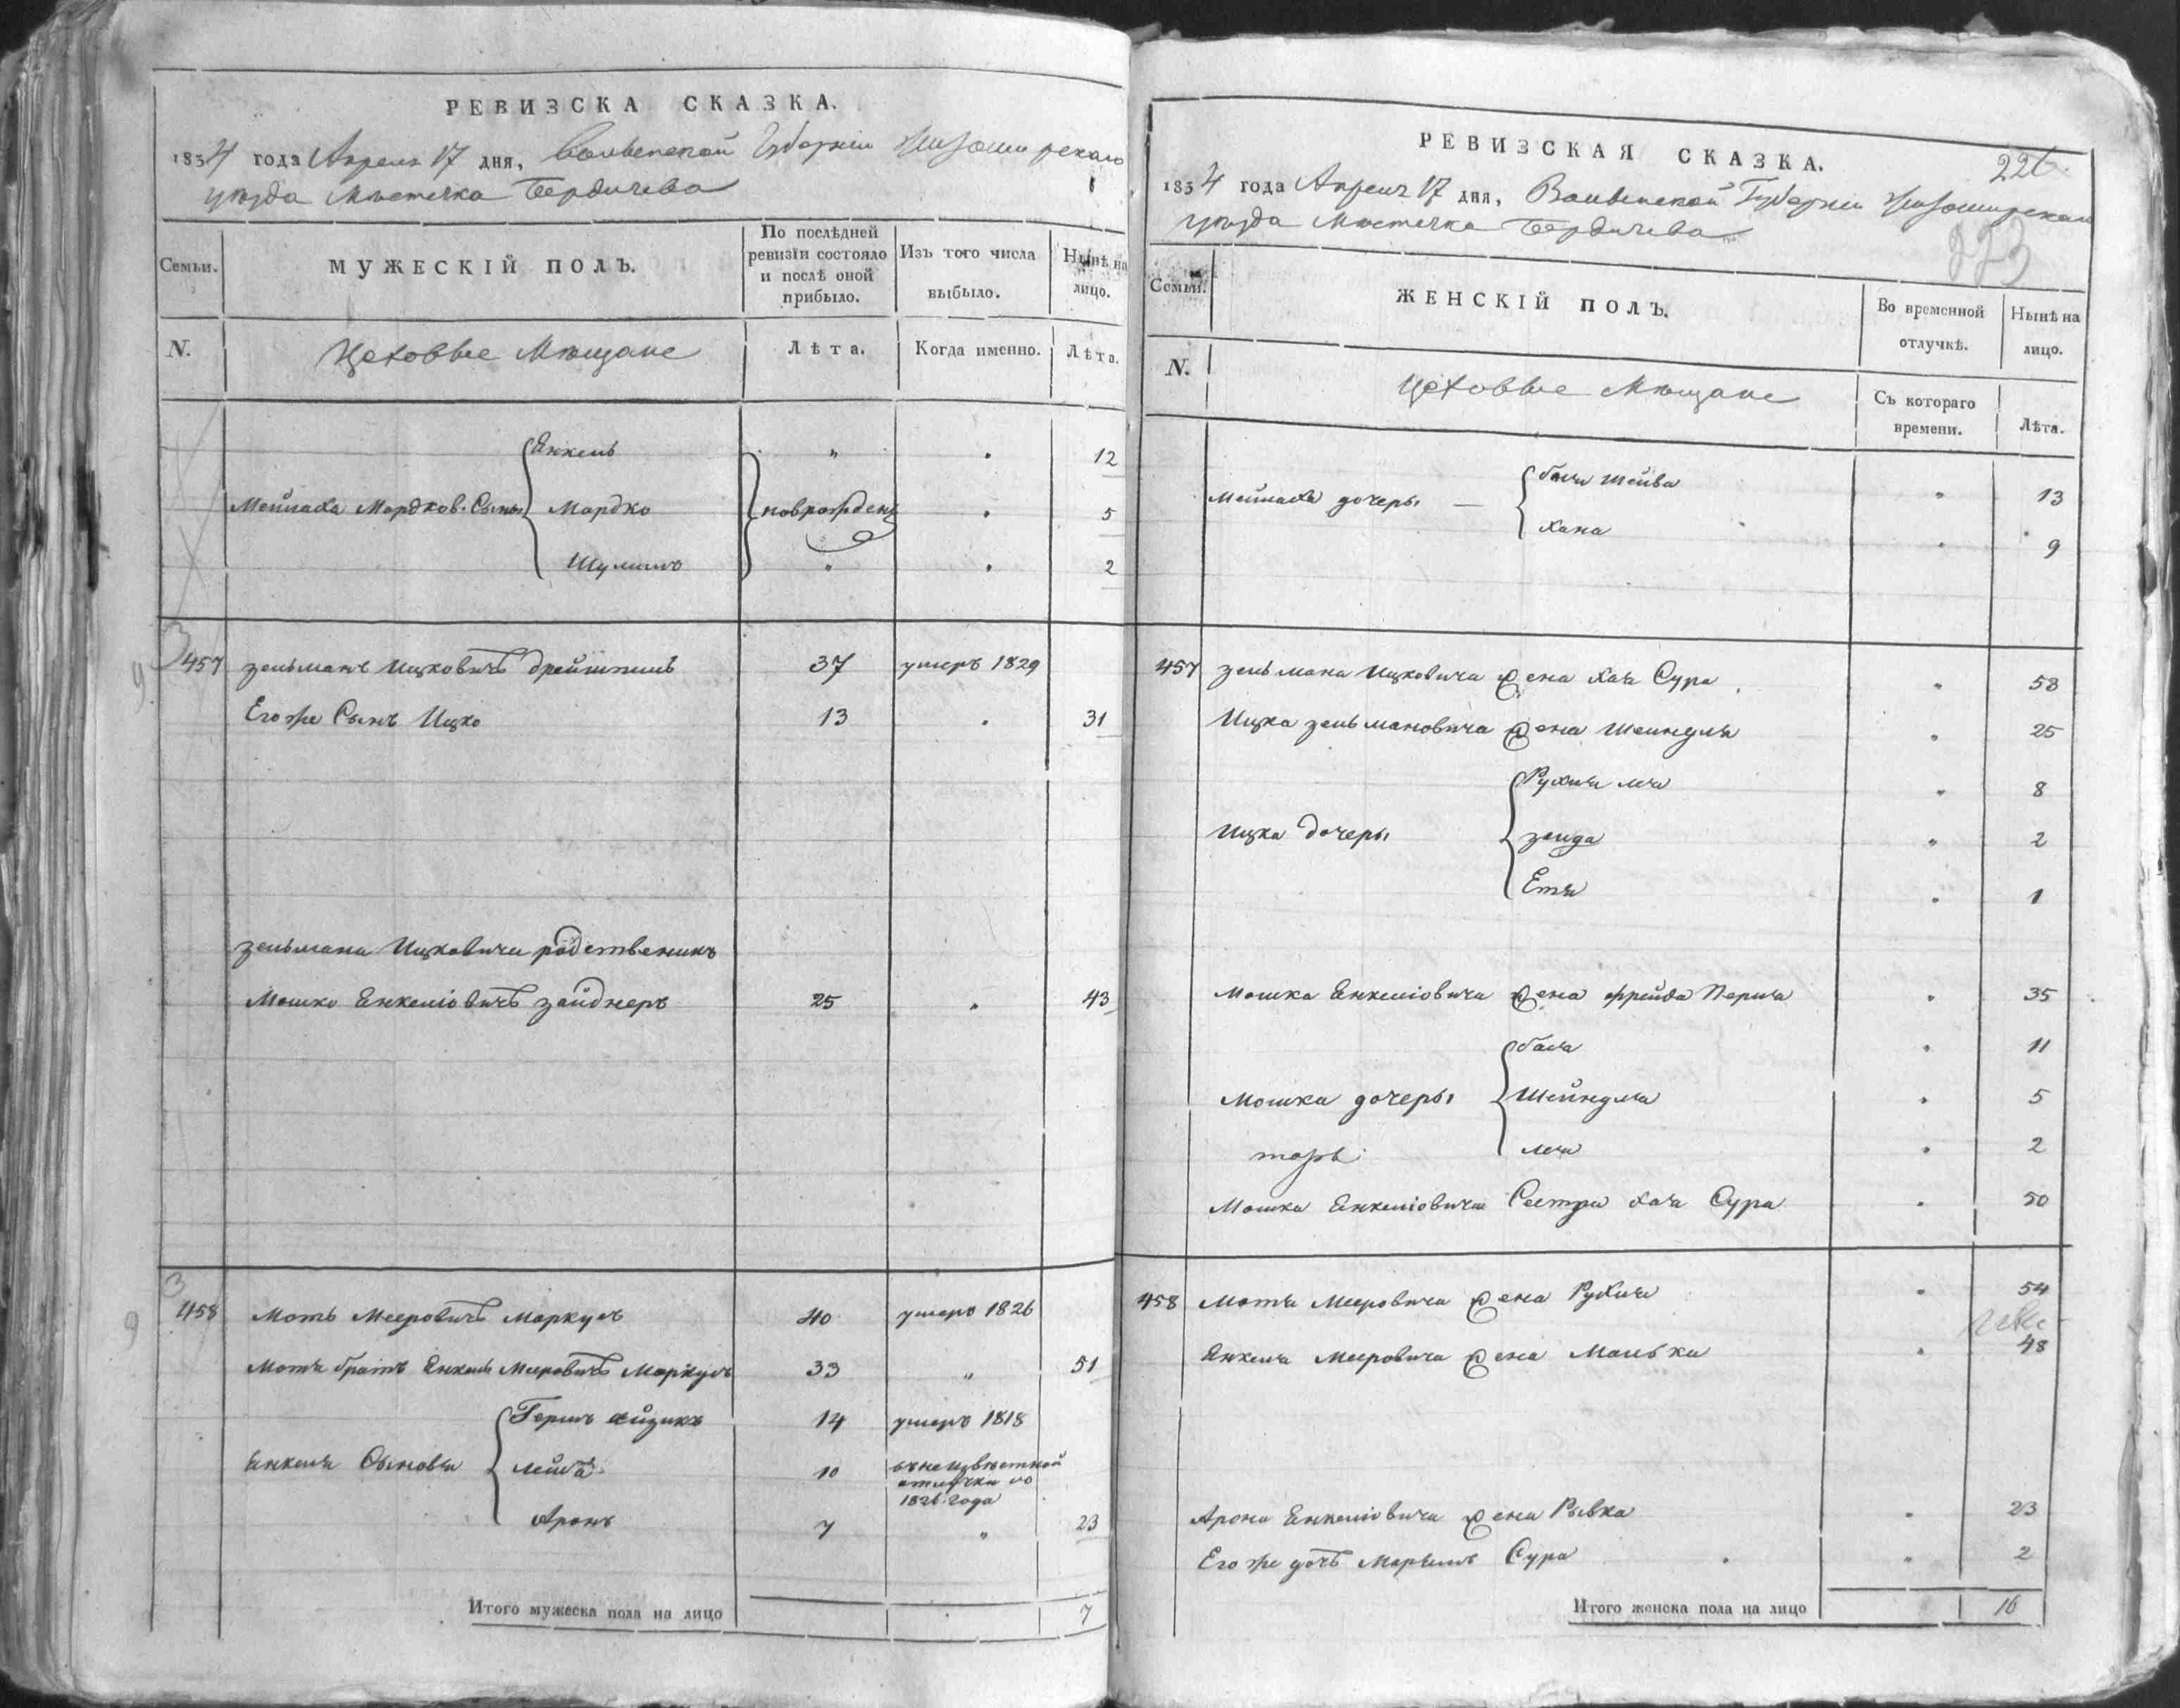 РЕВИЗСКА СКАЗКА.
1834 года Апреля 17 дня, Волынской Губерніи Житомирскаго
уѣзда Мѣстечка Бердичева
Семьи.
МУЖЕСКІЙ ПОЛЪ.
По послѣдней ревизіи состояло и послѣ оной прибыло.
Изъ того числа выбыло.
Нынѣ на лицо.
N.
Цеховые Мѣщане
Лѣта.
Когда именно.
Лѣта.
Енкель " 12
Мейлаха Мордков. Сыны Мордко новорожден 5
Шулимъ 2
457 Зельманъ Ицковичъ 37 умеръ 1829
Его же Сынъ Ицко 13 31
Зельмана Ицковича родственикъ
Мошко Енкеліовичъ Зайднеръ 25 43
458 Моть Мееровичъ Маркусъ 40 умеръ 1826
Мотя братъ Енкель Мееровичъ Маркусъ 33 " 51
Гершъ Айзикъ 14 умеръ 1818
Енкеля Сыновья Лейба 10 въ неизвѣстной
отлучки со
1826 года
Аронъ 7 " 23
Итого мужеска пола на лицо 7
РЕВИЗСКАЯ СКАЗКА.
226
1834 года Апреля 17 дня, Волынской Губерніи Житомирскаго
уѣзда Мѣстечка Бердичева
223
Семьи.
ЖЕНСКІЙ ПОЛЪ.
Во временной отлучкѣ.
Нынѣ на лицо.
N.
Цеховые Мѣщане
Съ котораго времени.
Лѣта.
Мейлаха дочеры — Бася Шейва " 13
Хана 9
457 Зельмана Ицковича жена Хая Сура " 58
Ицка Зельмановича жена Шейндля " 25
Рухля Лея " 8
Ицка дочеры Зелда " 2
Етя 1
Мошка Енкеліовича жена Фрейда Перля 35
Бася 11
Мошка дочеры Шейндля 5
Лея 2
Мошка Енкеліовича Сестра Хая Сура 50
458 Мотя Мееровича жена Рухля 54
Енкеля Мееровича жена Малька 48
Арона Енкеліовича жена Рывка 23
Его же дочь Марьямъ Сура " 2
Итого женска пола на лицо 16